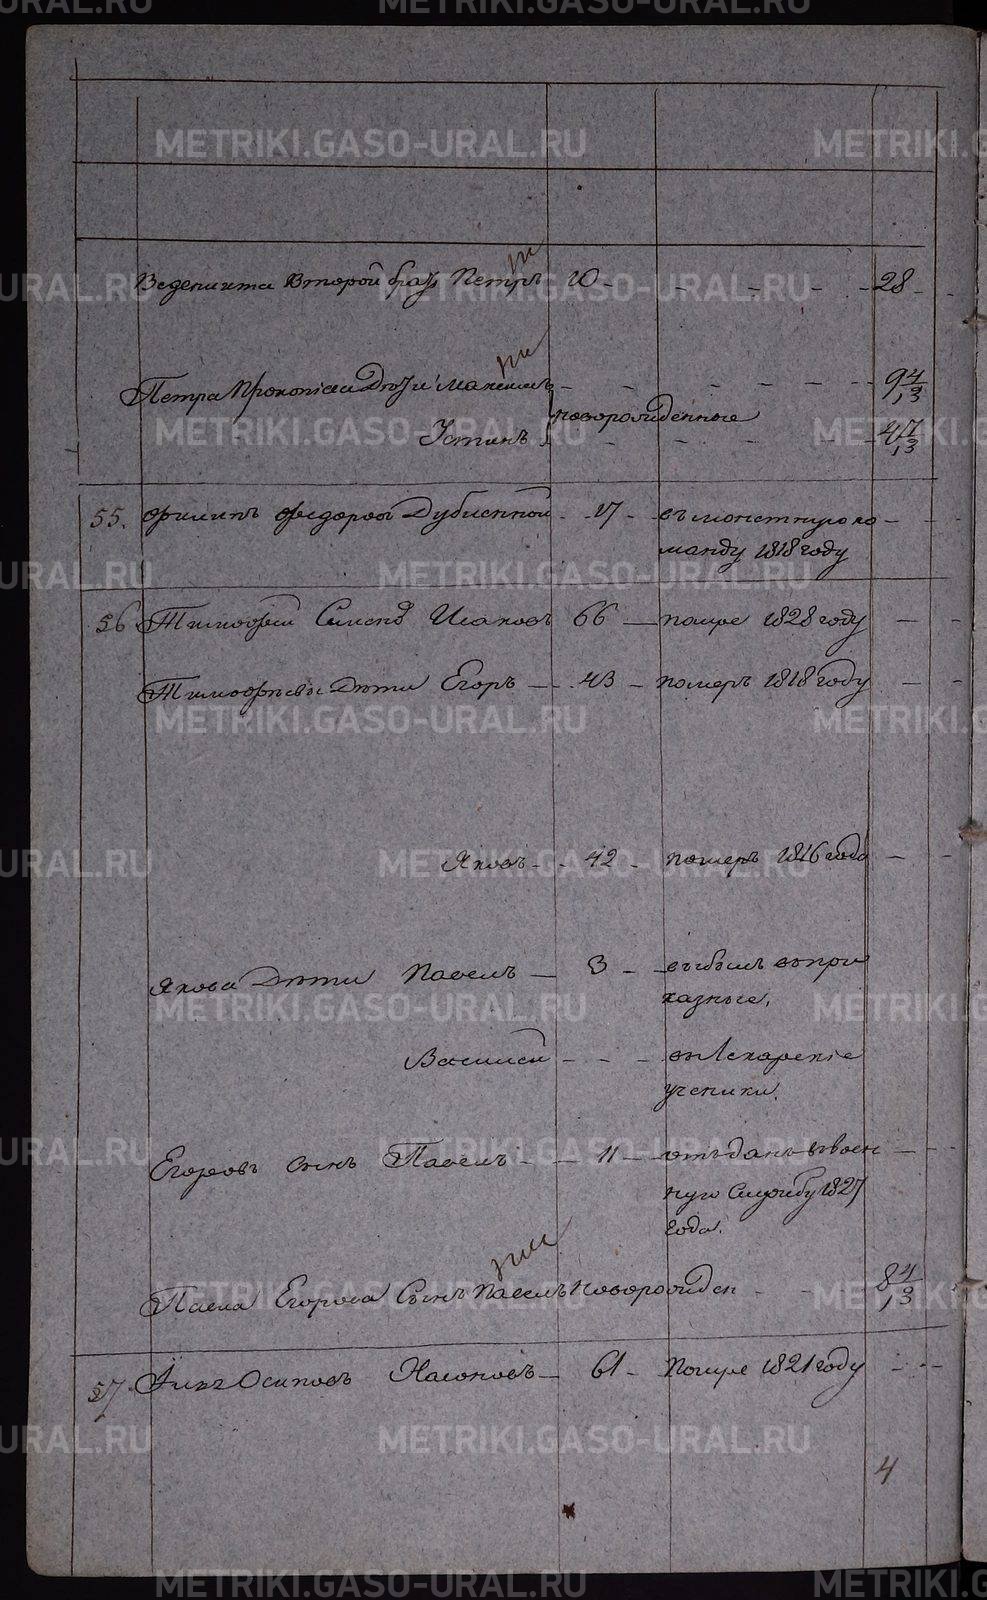 Веденихта второй братъ Петръ 10 28
Петра Прокопьева дѣти Максимъ 9 4/13
новорожденные
Устинъ 4 7/13
55. Филипъ Федоровъ Дубисной 17 въ монетную ко
манду 1818 году
56 Тимофей Семеновъ Исаковъ 66 помре 1828 году
Тимофѣевы дѣти Егоръ 43 померъ 1818 году
Яковъ 42 померъ 1816 года
Якова дѣти Павелъ 3 выбылъ въ при
казные.
Василей въ лекарскіе
ученики.
Егоровъ сынъ Павелъ 11 отъданъ въ воен
ную службу 1827
года.
Павла Егорова сынъ Павелъ новорожден 8 4/13
57 Осиповъ 61 помре 1821 году
4
METRIKI.GASO-URAL.RU